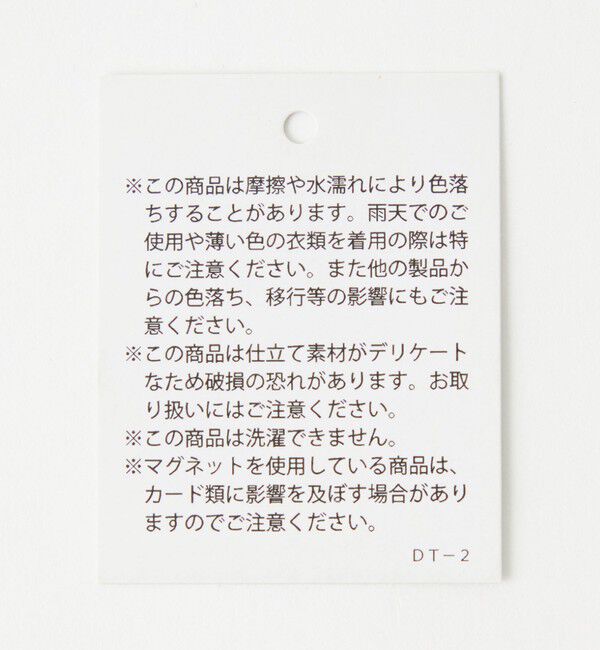 ※この商品は摩擦や水濡れにより色落
ちすることがあります。雨天でのご
使用や薄い色の衣類を着用の際は特
にご注意ください。また他の製品か
らの色落ち、移行等の影響にもご注
意ください。
※この商品は仕立て素材がデリケート
なため破損の恐れがあります。お取
り扱いにはご注意ください。
※この商品は洗濯できません。
※マグネットを使用している商品は、
カード類に影響を及ぼす場合があり
ますのでご注意ください。
DT－2